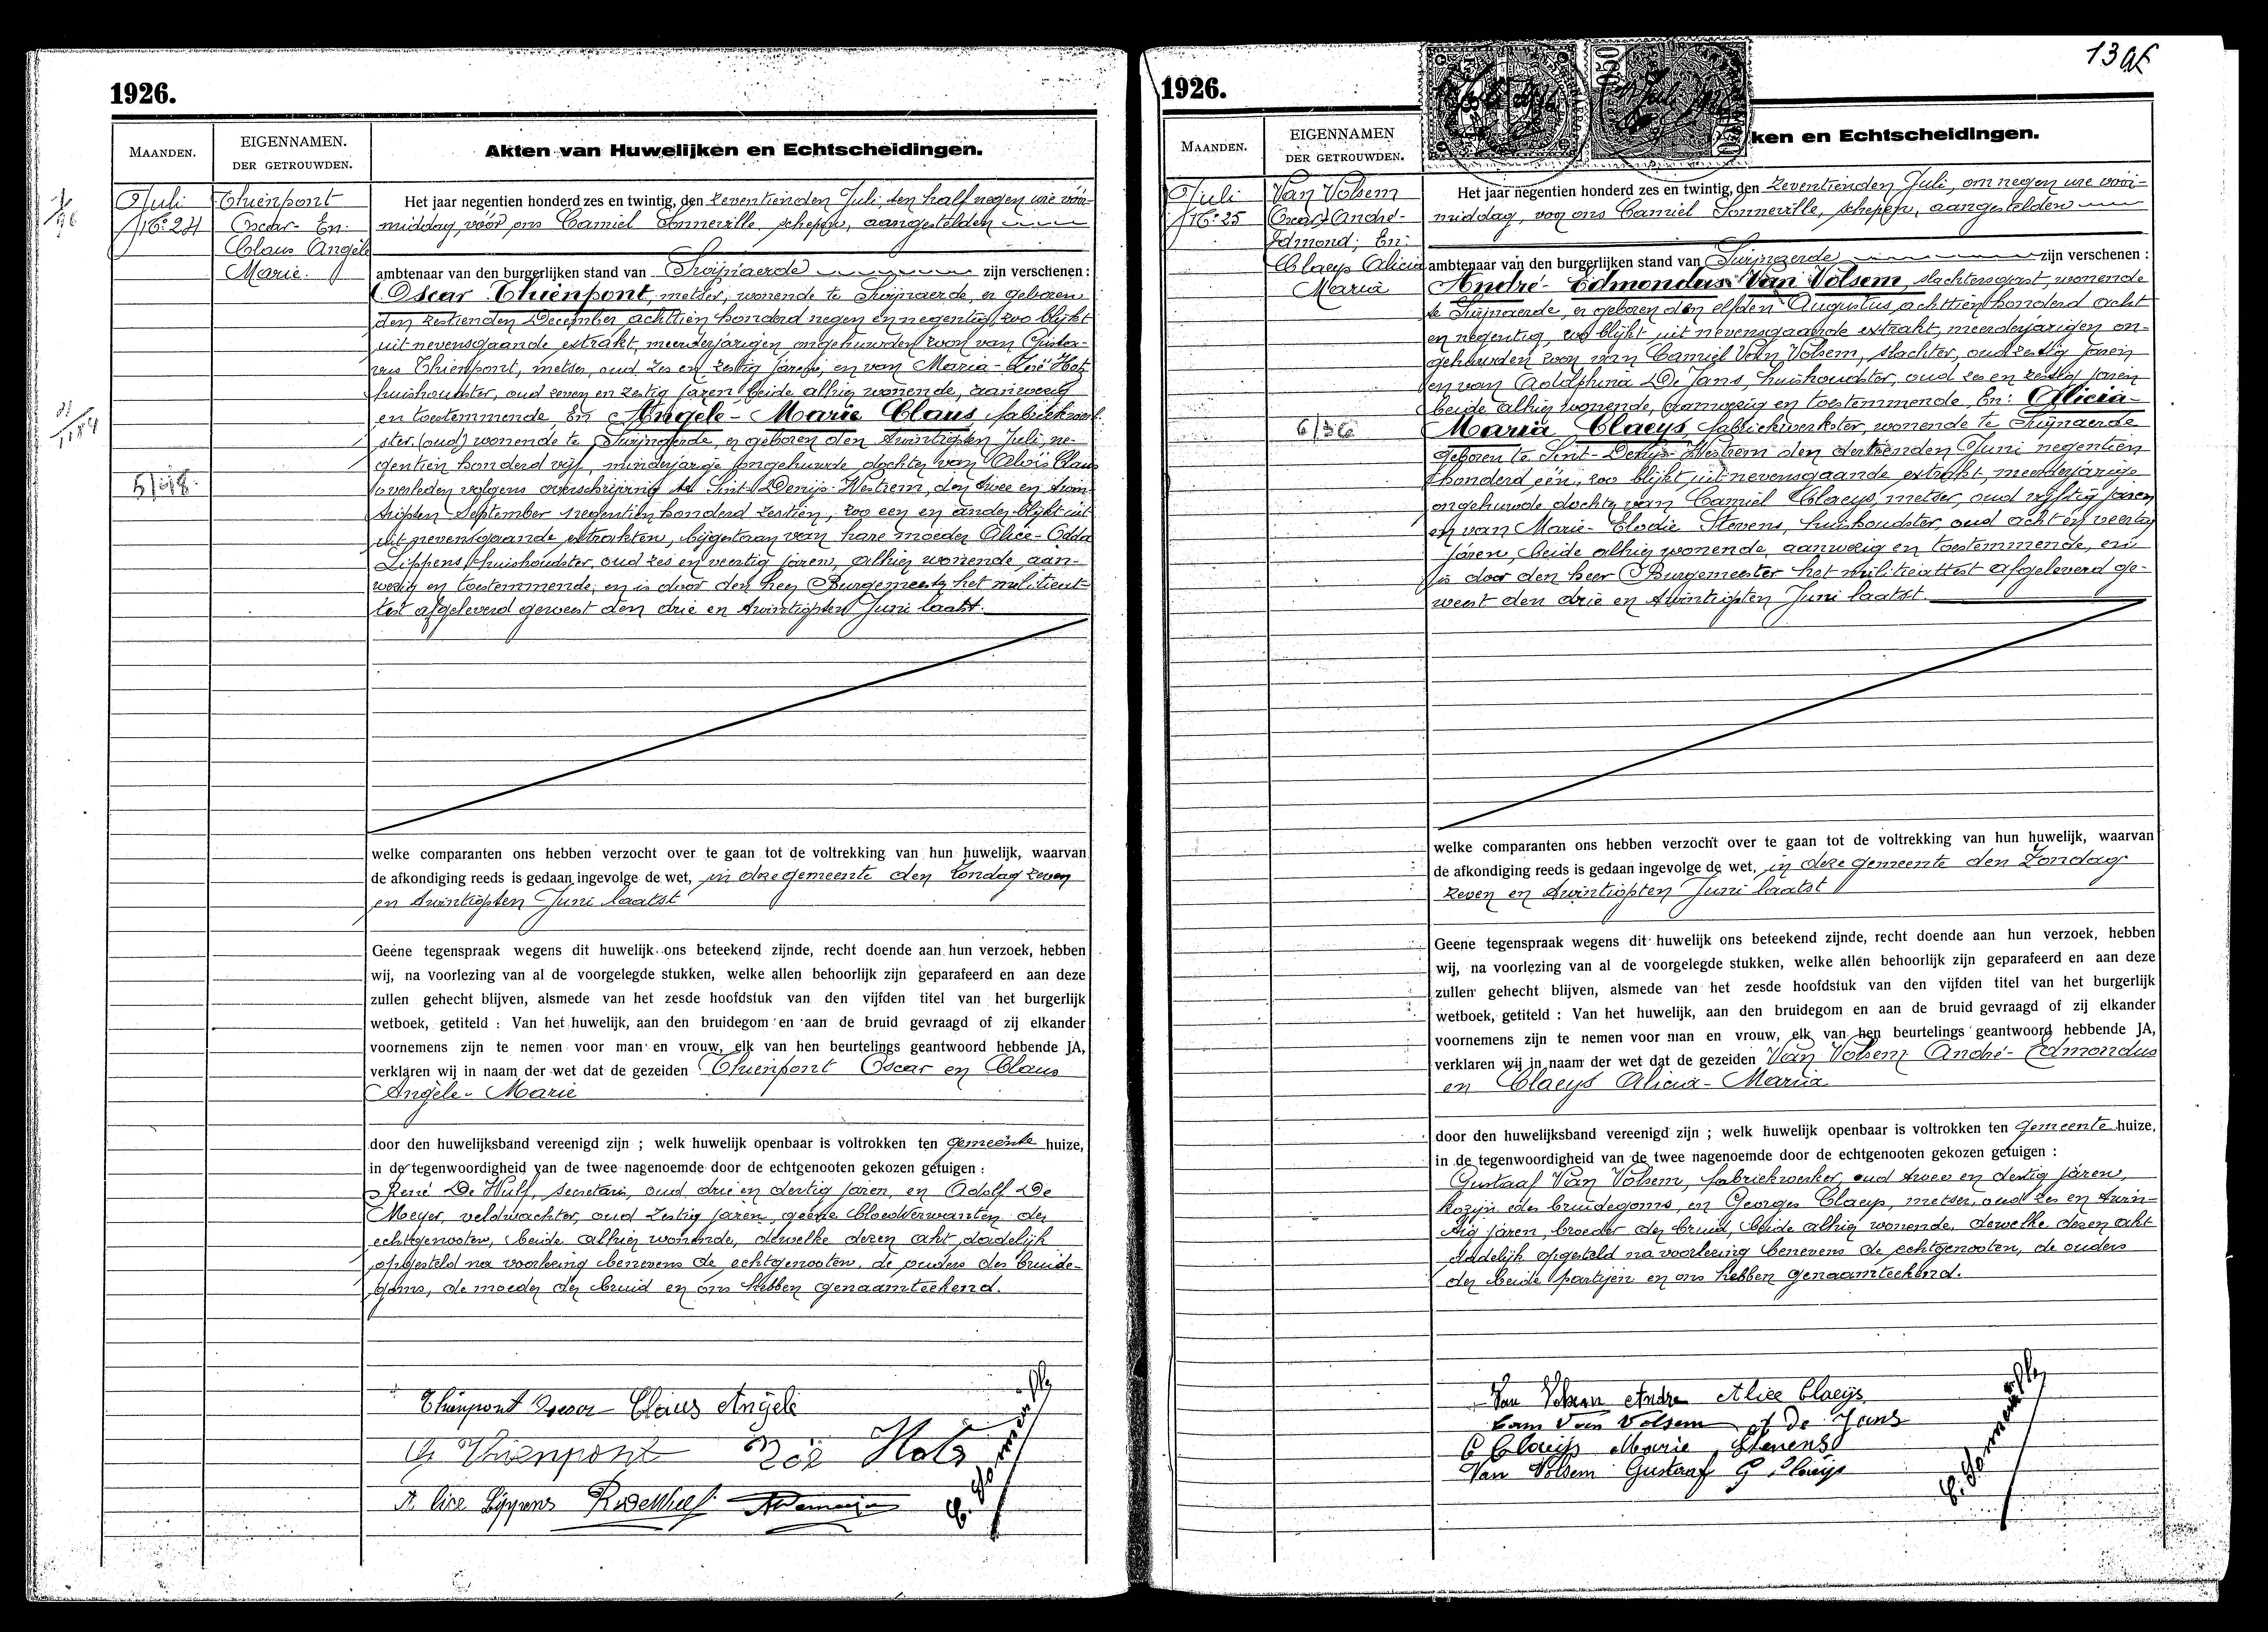 1926.
MAANDEN.
EIGENNAMEN.
DER GETROUWDEN.
Akten van Huwelijken en Echtscheidingen.
Juli
N°: 24
Thienpont
Oscar - En:
Claus Angèle
Marie.
5/48.
Het jaar negentien honderd zes en twintig, den zeventienden Juli, ten half negen ure vóór-
middag, vóór ons Camiel Sonneville, schepen, aangestelden
ambtenaar van den burgerlijken stand van Swijnaerde zijn verschenen :
Oscar Thienpont, metser, wonende te Swijnaerde, er geboren
den zestienden December achttien honderd negen en negentig, zoo blijkt
uit nevensgaande extrakt, meerderjarigen ongehuwden zoon van Gusta-
vus Thienpont, metser, oud zes en zestig jaren, en van Maria - Zoë Hots
huishoudster, oud zeven en zestig jaren, beide alhier wonende, aanwezig
en toestemmende, En Angèle - Marie Claus, fabriekwerk-
ster, (oud) wonende te Swijnaerde, er geboren den twintigsten Juli, ne-
gentien honderd vijf, minderjarige ongehuwde dochter van Aloïs Claus
overleden volgens overschrijving te Sint-Denijs-Westrem, den twee en twin-
tigsten September negentien honderd zestien, zoo een en ander blijkt uit
uit nevensgaande extrakten, bijgestaan van hare moeder Alice - Odda
Lippens, huishoudster, oud zes en veertig jaren, alhier wonende aan-
wezig en toestemmende, en is door den heer Burgemeester het militieat-
test afgeleverd geweest den drie en twintigsten Juni laatst.
welke comparanten ons hebben verzocht over te gaan tot de voltrekking van hun huwelijk, waarvan
de afkondiging reeds is gedaan ingevolge de wet, in deze gemeente den Zondag zeven
en twintigsten Juni laatst
Geene tegenspraak wegens dit huwelijk ons beteekend zijnde, recht doende aan hun verzoek, hebben
wij, na voorlezing van al de voorgelegde stukken, welke allen behoorlijk zijn geparafeerd en aan deze
zullen gehecht blijven, alsmede van het zesde hoofdstuk van den vijfden titel van het burgerlijk
wetboek, getiteld : Van het huwelijk, aan den bruidegom en aan de bruid gevraagd of zij elkander
voornemens zijn te nemen voor man en vrouw, elk van hen beurtelings geantwoord hebbende JA,
verklaren wij in naam der wet dat de gezeiden Thienpont Oscar en Claus
Angèle - Marie
door den huwelijksband vereenigd zijn ; welk huwelijk openbaar is voltrokken ten gemeente huize,
in de tegenwoordigheid van de twee nagenoemde door de echtgenooten gekozen getuigen :
René De Wulf, secretaris, oud drie en dertig jaren, en Adolf De
Meyer, veldwachter, oud zestig jaren, geene bloedverwanten der
echtgenooten, beide alhier wonende, dewelke dezen akt dadelijk
opgesteld na voorlezing benevens de echtgenooten, de ouders des bruide-
goms, de moeder der bruid en ons hebben genaamteekend.
Thienpont Oscar Claus Angèle
G Thienpont Zoë Hots
Alice Lippens R. De Wulf A Demeijer
C. Sonneville
1926.
13
MAANDEN.
EIGENNAMEN
DER GETROUWDEN.
ken en Echtscheidingen.
Juli
N°: 25
Van Volsem
(Oscar) André -
Edmond; En:
Claeys Alicia
Maria
6/36
Het jaar negentien honderd zes en twintig, den zeventienden Juli, om negen ure vóór-
middag, voor ons Camiel Sonneville, schepen, aangestelden
ambtenaar van den burgerlijken stand van Swijnaerde zijn verschenen :
André - Edmondus Van Volsem, slachtersgast, wonende
te Swijnaerde, er geboren den elfden Augustus achttien honderd acht
en negentig, zoo blijkt uit nevensgaande extrakt, meerderjarigen on-
gehuwden zoon van Camiel Van Volsem, slachter, oud zestig jaren
en van Adolphina De Jans, huishoudster, oud zes en zestig jaren
beide alhier wonende, aanwezig en toestemmende, En: Alicia -
Maria Claeys, fabriekwerkster, wonende te Swijnaerde
geboren te Sint-Denijs-Westrem den dertienden Juni negentien
honderd één, zoo blijkt uit nevensgaande extrakt, meerderjarige
ongehuwde dochter van Camiel Claeys, metser, oud vijftig jaren
en van Marie - Elodie Stevens, huishoudster, oud acht en veertig
jaren, beide alhier wonende, aanwezig en toestemmende, en
is door den heer Burgemeester het militieattest afgeleverd ge-
weest den drie en twintigsten Juni laatst.
welke comparanten ons hebben verzocht over te gaan tot de voltrekking van hun huwelijk, waarvan
de afkondiging reeds is gedaan ingevolge de wet, in deze gemeente den Zondag
zeven en twintigsten Juni laatst
Geene tegenspraak wegens dit huwelijk ons beteekend zijnde, recht doende aan hun verzoek, hebben
wij, na voorlezing van al de voorgelegde stukken, welke allen behoorlijk zijn geparafeerd en aan deze
zullen gehecht blijven, alsmede van het zesde hoofdstuk van den vijfden titel van het burgerlijk
wetboek, getiteld : Van het huwelijk, aan den bruidegom en aan de bruid gevraagd of zij elkander
voornemens zijn te nemen voor man en vrouw, elk van hen beurtelings geantwoord hebbende JA,
verklaren wij in naam der wet dat de gezeiden Van Volsem André - Edmondus
en Claeys Alicia - Maria
door den huwelijksband vereenigd zijn ; welk huwelijk openbaar is voltrokken ten gemeente huize,
in de tegenwoordigheid van de twee nagenoemde door de echtgenooten gekozen getuigen :
Gustaaf Van Volsem, fabriekwerker, oud twee en dertig jaren,
kozijn des bruidegoms, en Georges Claeys, metser, oud zes en twin-
tig jaren, broeder der bruid, beide alhier wonende, dewelke dezen akt
dadelijk opgesteld na voorlezing benevens de echtgenooten, de ouders
der beide partijen en ons hebben genaamteekend.
Van Volsem Andre Alice Claeijs
Cam Van Volsem A De Jans
C Claeijs Marie Stevens
Van Volsem Gustaaf G Claeijs
C. Sonneville